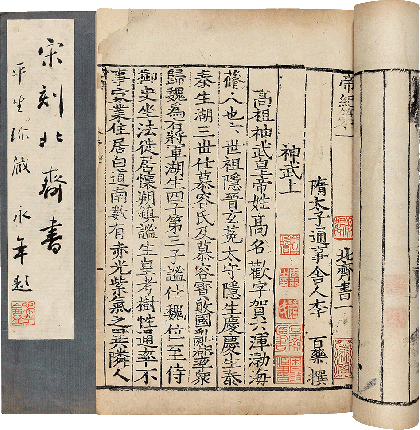 帝紀第一 北齊書一
隋太子通事舍人李 百藥 撰
神武上
高祖神武皇帝姓高名歡字賀六渾渤海
脩人也六世祖隱晉玄菟太守隱生慶慶生泰
泰生湖三世仕慕容氏及慕容寶敗國亂湖率衆
歸魏為右將軍湖生四子第三子謐仕魏位至侍
御史坐法徙居懷朔鎮謐生皇考樹性通率不
事家業住居白道南數有赤光紫氣之異隣人
宋刻北齊書
平生珍藏 永年題